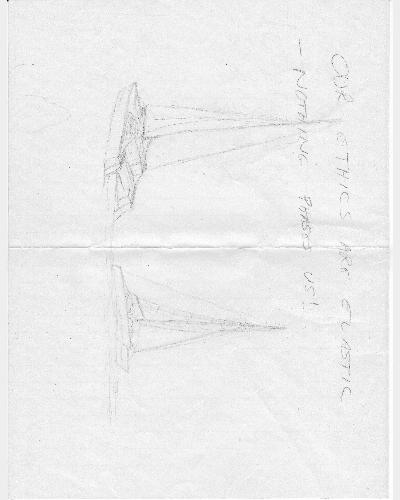 OUR ETHICS ARE ELASTIC
– NOTHING PHASES US!